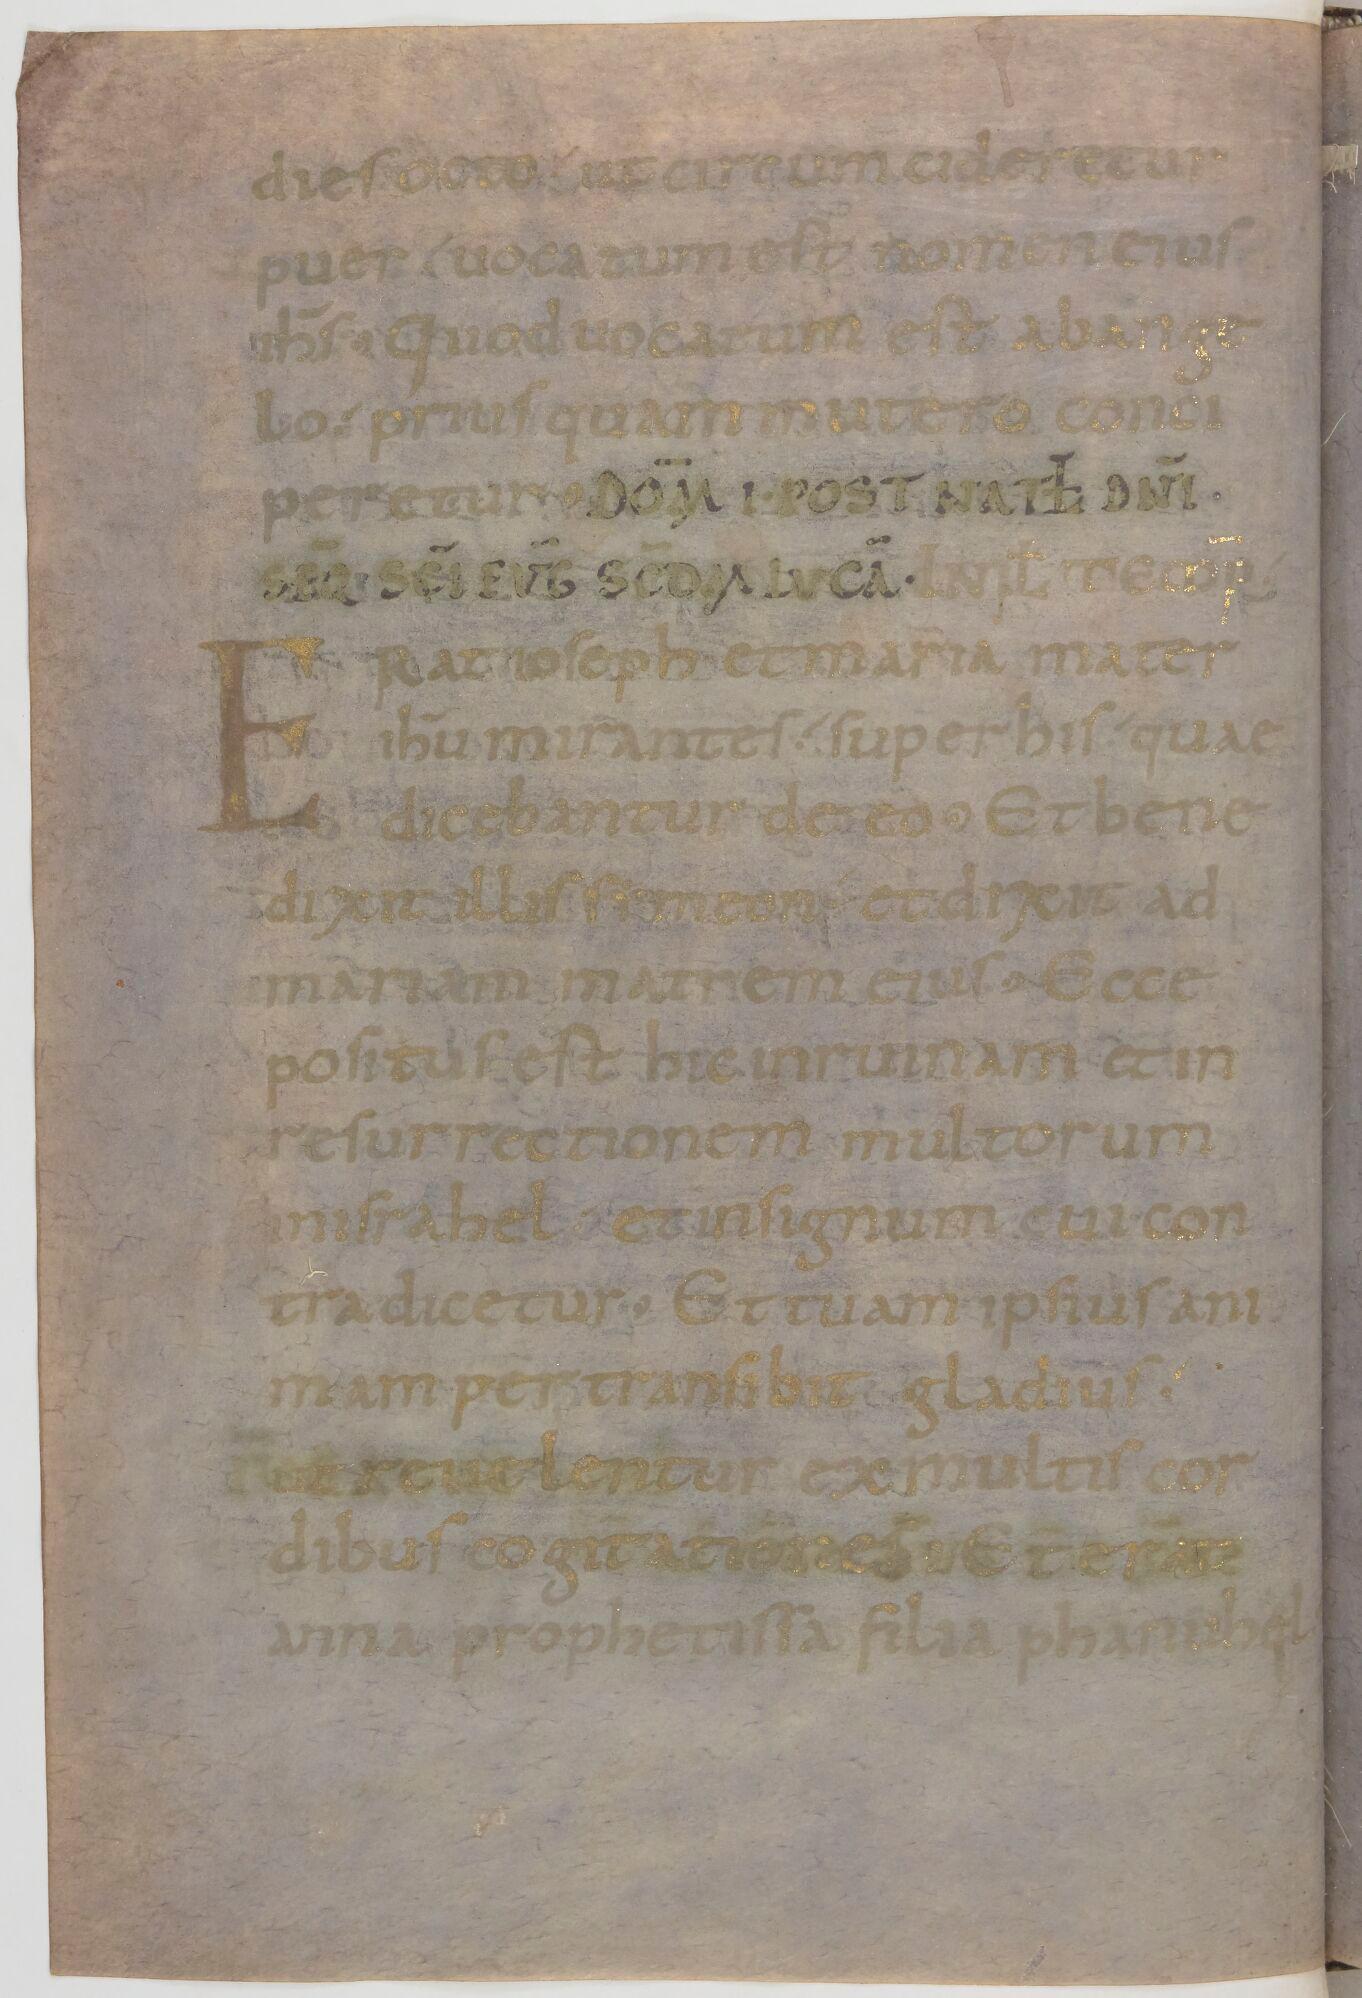 dies octo ut circumcideretur
puer uocatum est nomen eius
ih̅s. Quod uocatum est ab ange
lo. prius quam in utero conci
peretur. DOM̅ I. POST NATL̅ DN̅I.
SEQ̅ SC̅I EVG̅ SC̅DM LVCA̅. IN IL̅L TEMP̅R
ERat ioseph et maria mater
ih̅u mirantes. super his quae
dicebantur de eo. Et bene
dixit illis simeon et dixit ad
mariam matrem eius. Ecce
positus est hic in ruinam et in
resurrectionem multorum
in israhel. et in signum cui con
tradicetur. Et tuam ipsius ani
mam pertransibit gladius.
ut reuelentur ex multis cor
dibus cogitationes. Et erat
anna prophetissa filia phanuhel